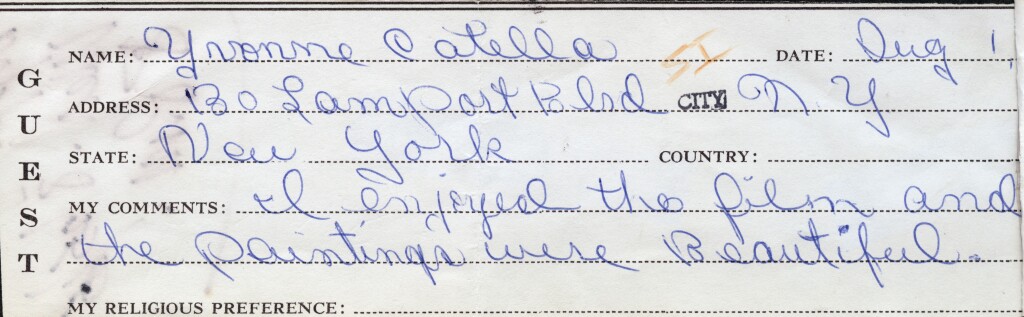 GUEST
NAME: Yvonne Catella DATE: Aug 1
SI
ADDRESS: 130 Lamport Blvd CITY N.Y
STATE: New York COUNTRY:
MY COMMENTS: I enjoyed the film and
the paintings were Beautiful.
MY RELIGIOUS PREFERENCE: